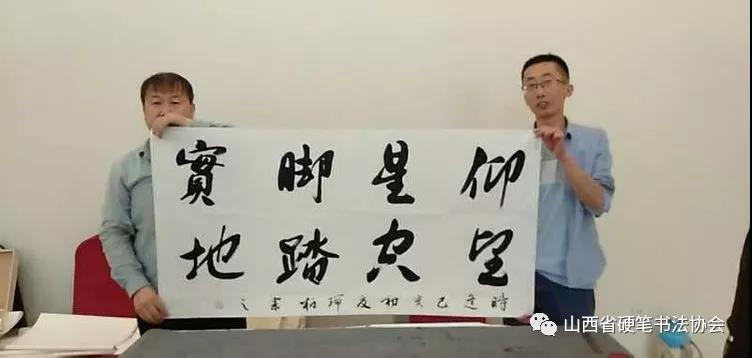 仰望
星空
脚踏
實地
時逢己亥初夏
山西省硬笔书法协会